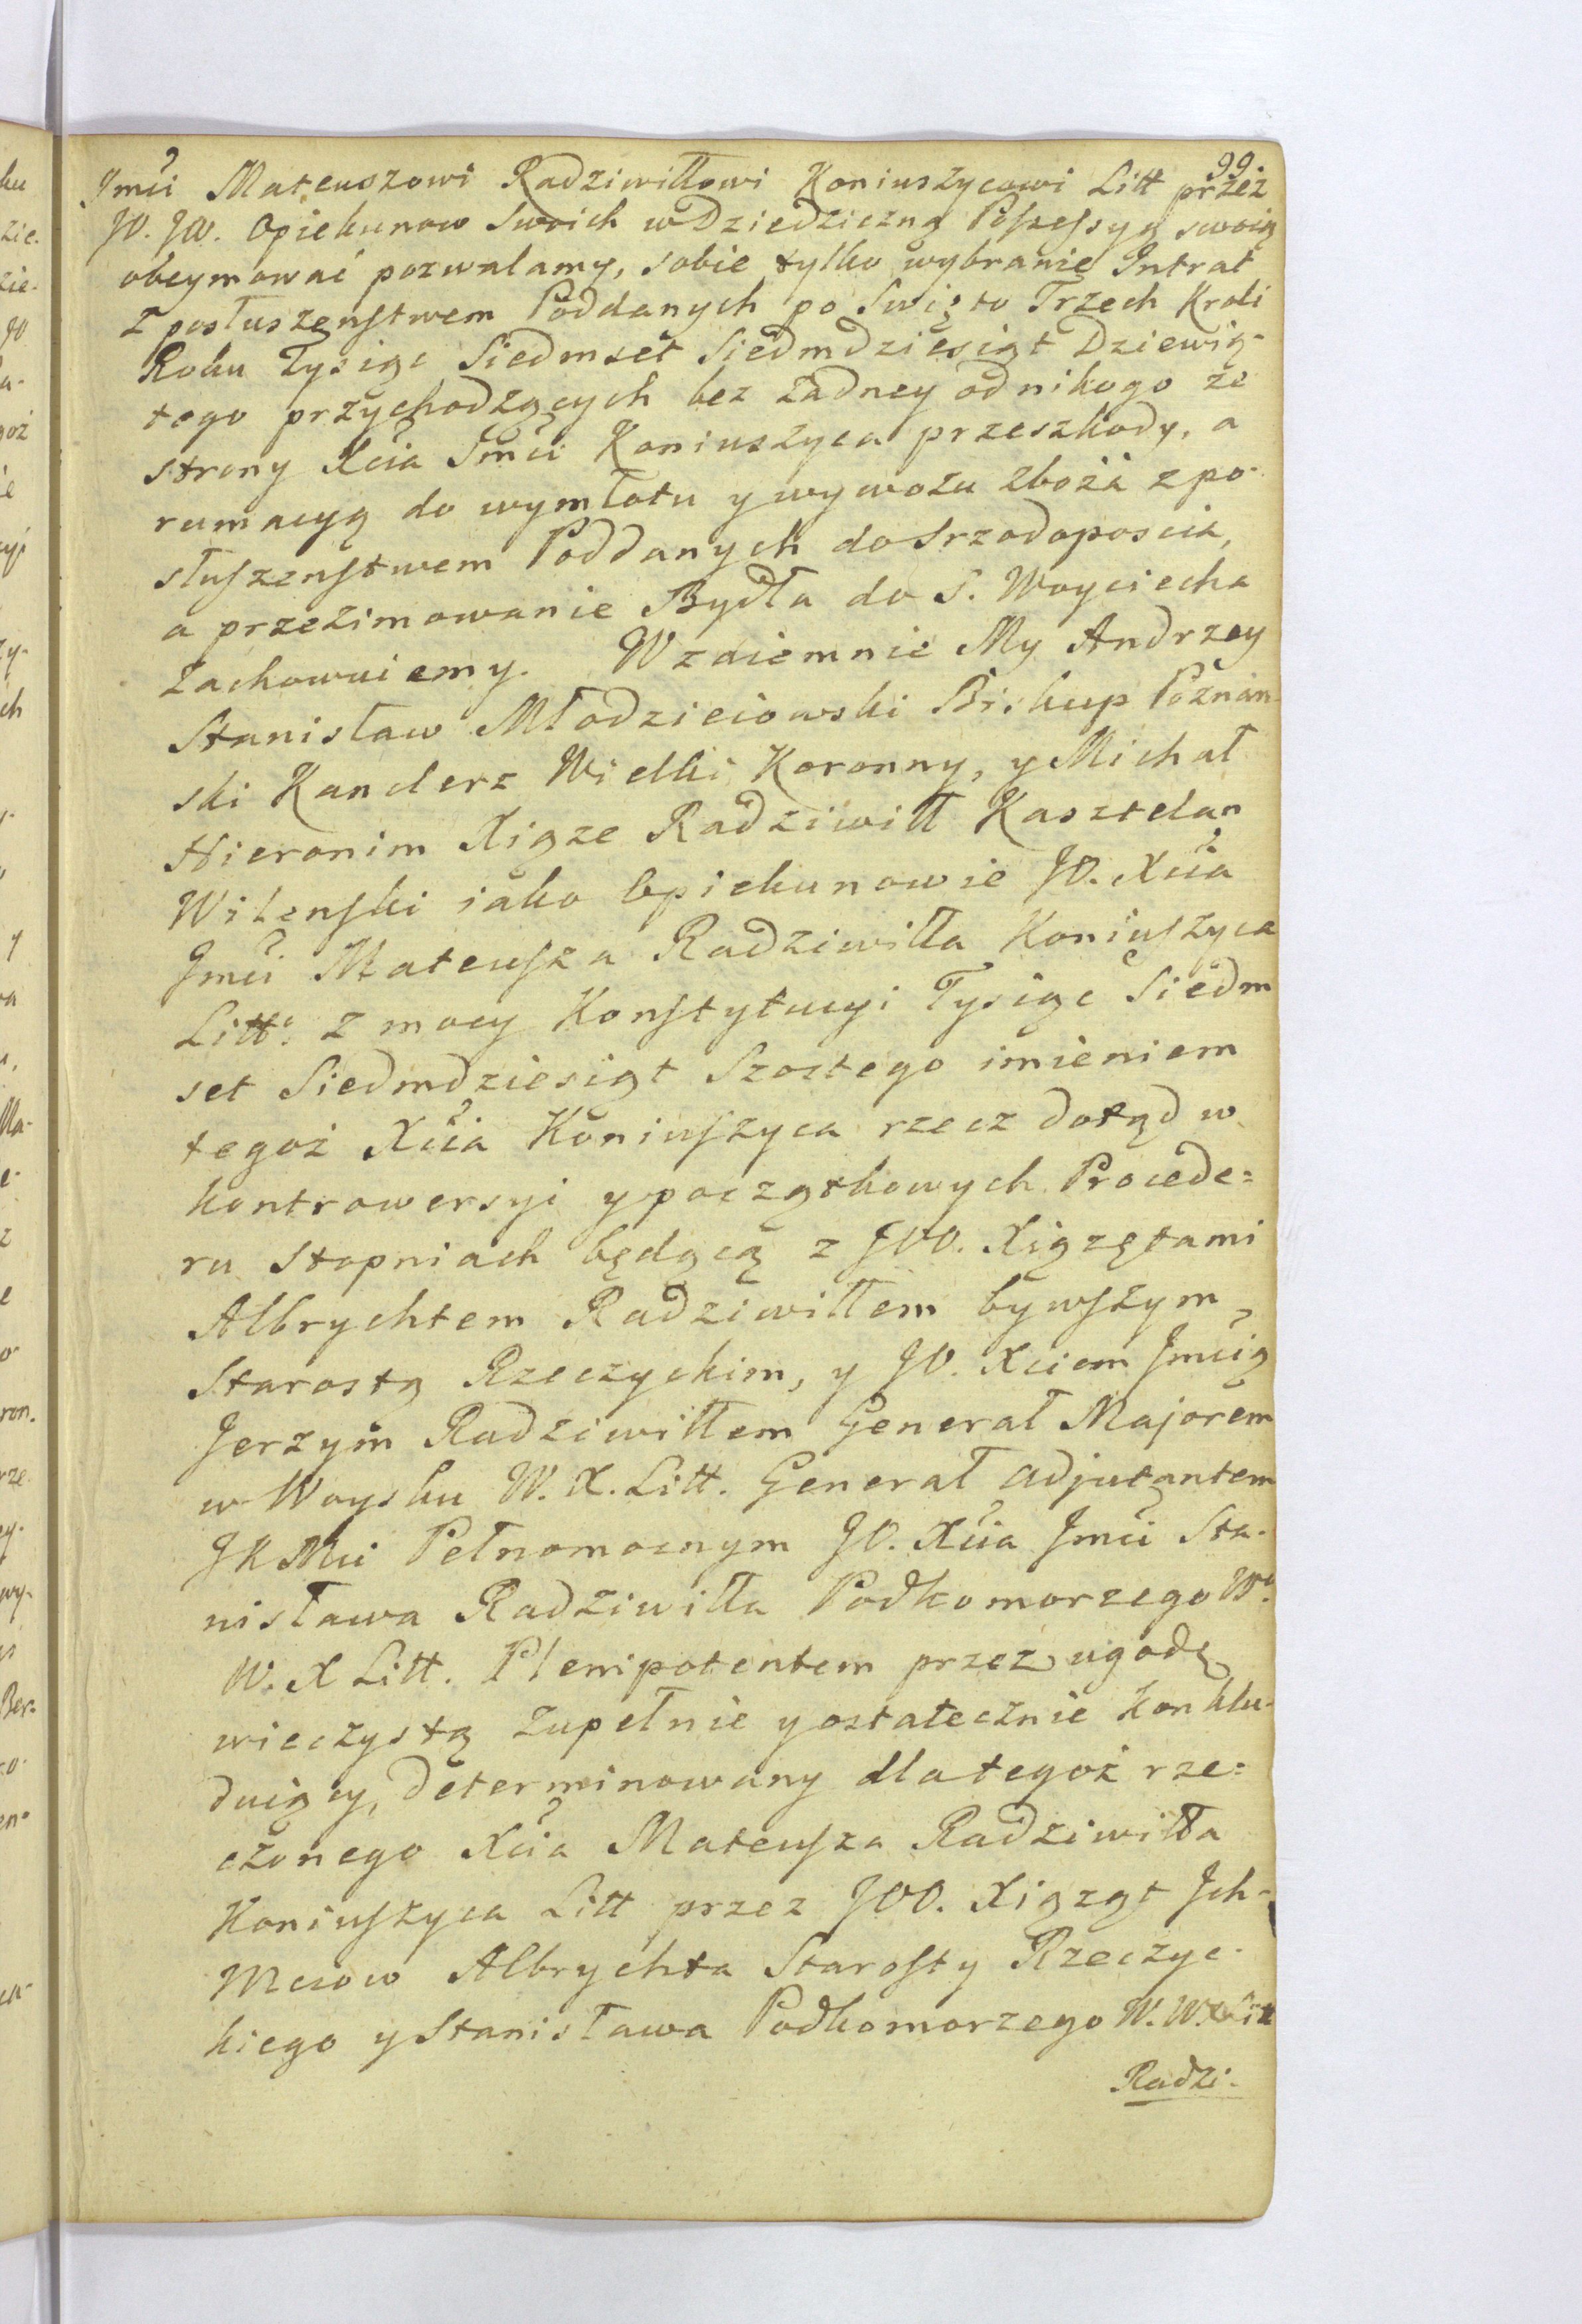 99.
Jmći Mateuszowi Radziwiłłowi Koniuszycowi Litt przez
JO. JW. Opiekunow Swoich w Dziedziczną Possessyą swoią
obeymować pozwalamy, sobie tylko wybranie Intrat
z posłuszenstwem Poddanych po Swięto Trzech Kroli
Roku Tysiąc Siedmset Siedmdziesiąt Dziewią-
tego przychodzących bez żadney od nikogo ze
strony Xcia Jmći Koniuszyca przeszkody, a
rumacyą do wymłotu y wywozu zboża z po-
słuszenstwem Poddanych do Srzodoposcia,
a przezimowanie Bydła do S. Woyciecha
zachowuiemy. Wzaiemnie My Andrzey
Stanisław Młodzieiowski Biskup Poznan-
ski Kanclerz Wielki Koronny, y Michał
Hieronim Xiąże Radziwiłł Kasztelan
Wilenski iako Opiekunowie JO. Xcia
Jmći Mateusza Radziwiłła Koniuszyca
Litt. z mocy Konstytucyi Tysiąc Siedm
set Siedmdziesiąt Szostego imieniem
tegoż Xcia Koniuszyca rzecz dotąd w
kontrowersyi y początkowych Procede=
ru stopniach będącą z JOO. Xiązętami
Albrychtem Radziwiłłem bywszym
Starostą Rzeczyckim, y JO. Xciem Jmcią
Jerzym Radziwiłłem Generał Majorem
w Woysku W. X. Litt. Generał Adjutantem
JKMci Pełnomocnym JO. Xcia Jmći Sta-
nisława Radziwiłła Podkomorzego W.
W. X Litt. Plenipotentem przez ugodę
wieczystą zupełnie y ostatecznie konklu-
duiący, determinowany dla tegoż rze=
czonego Xcia Mateusza Radziwiłła
Koniuszyca Litt przez JOO. Xiąząt Jch-
Mciow Albrychta Starosty Rzeczyc-
kiego y Stanisława Podkomorzego W. W. X. Litt
Radzi-